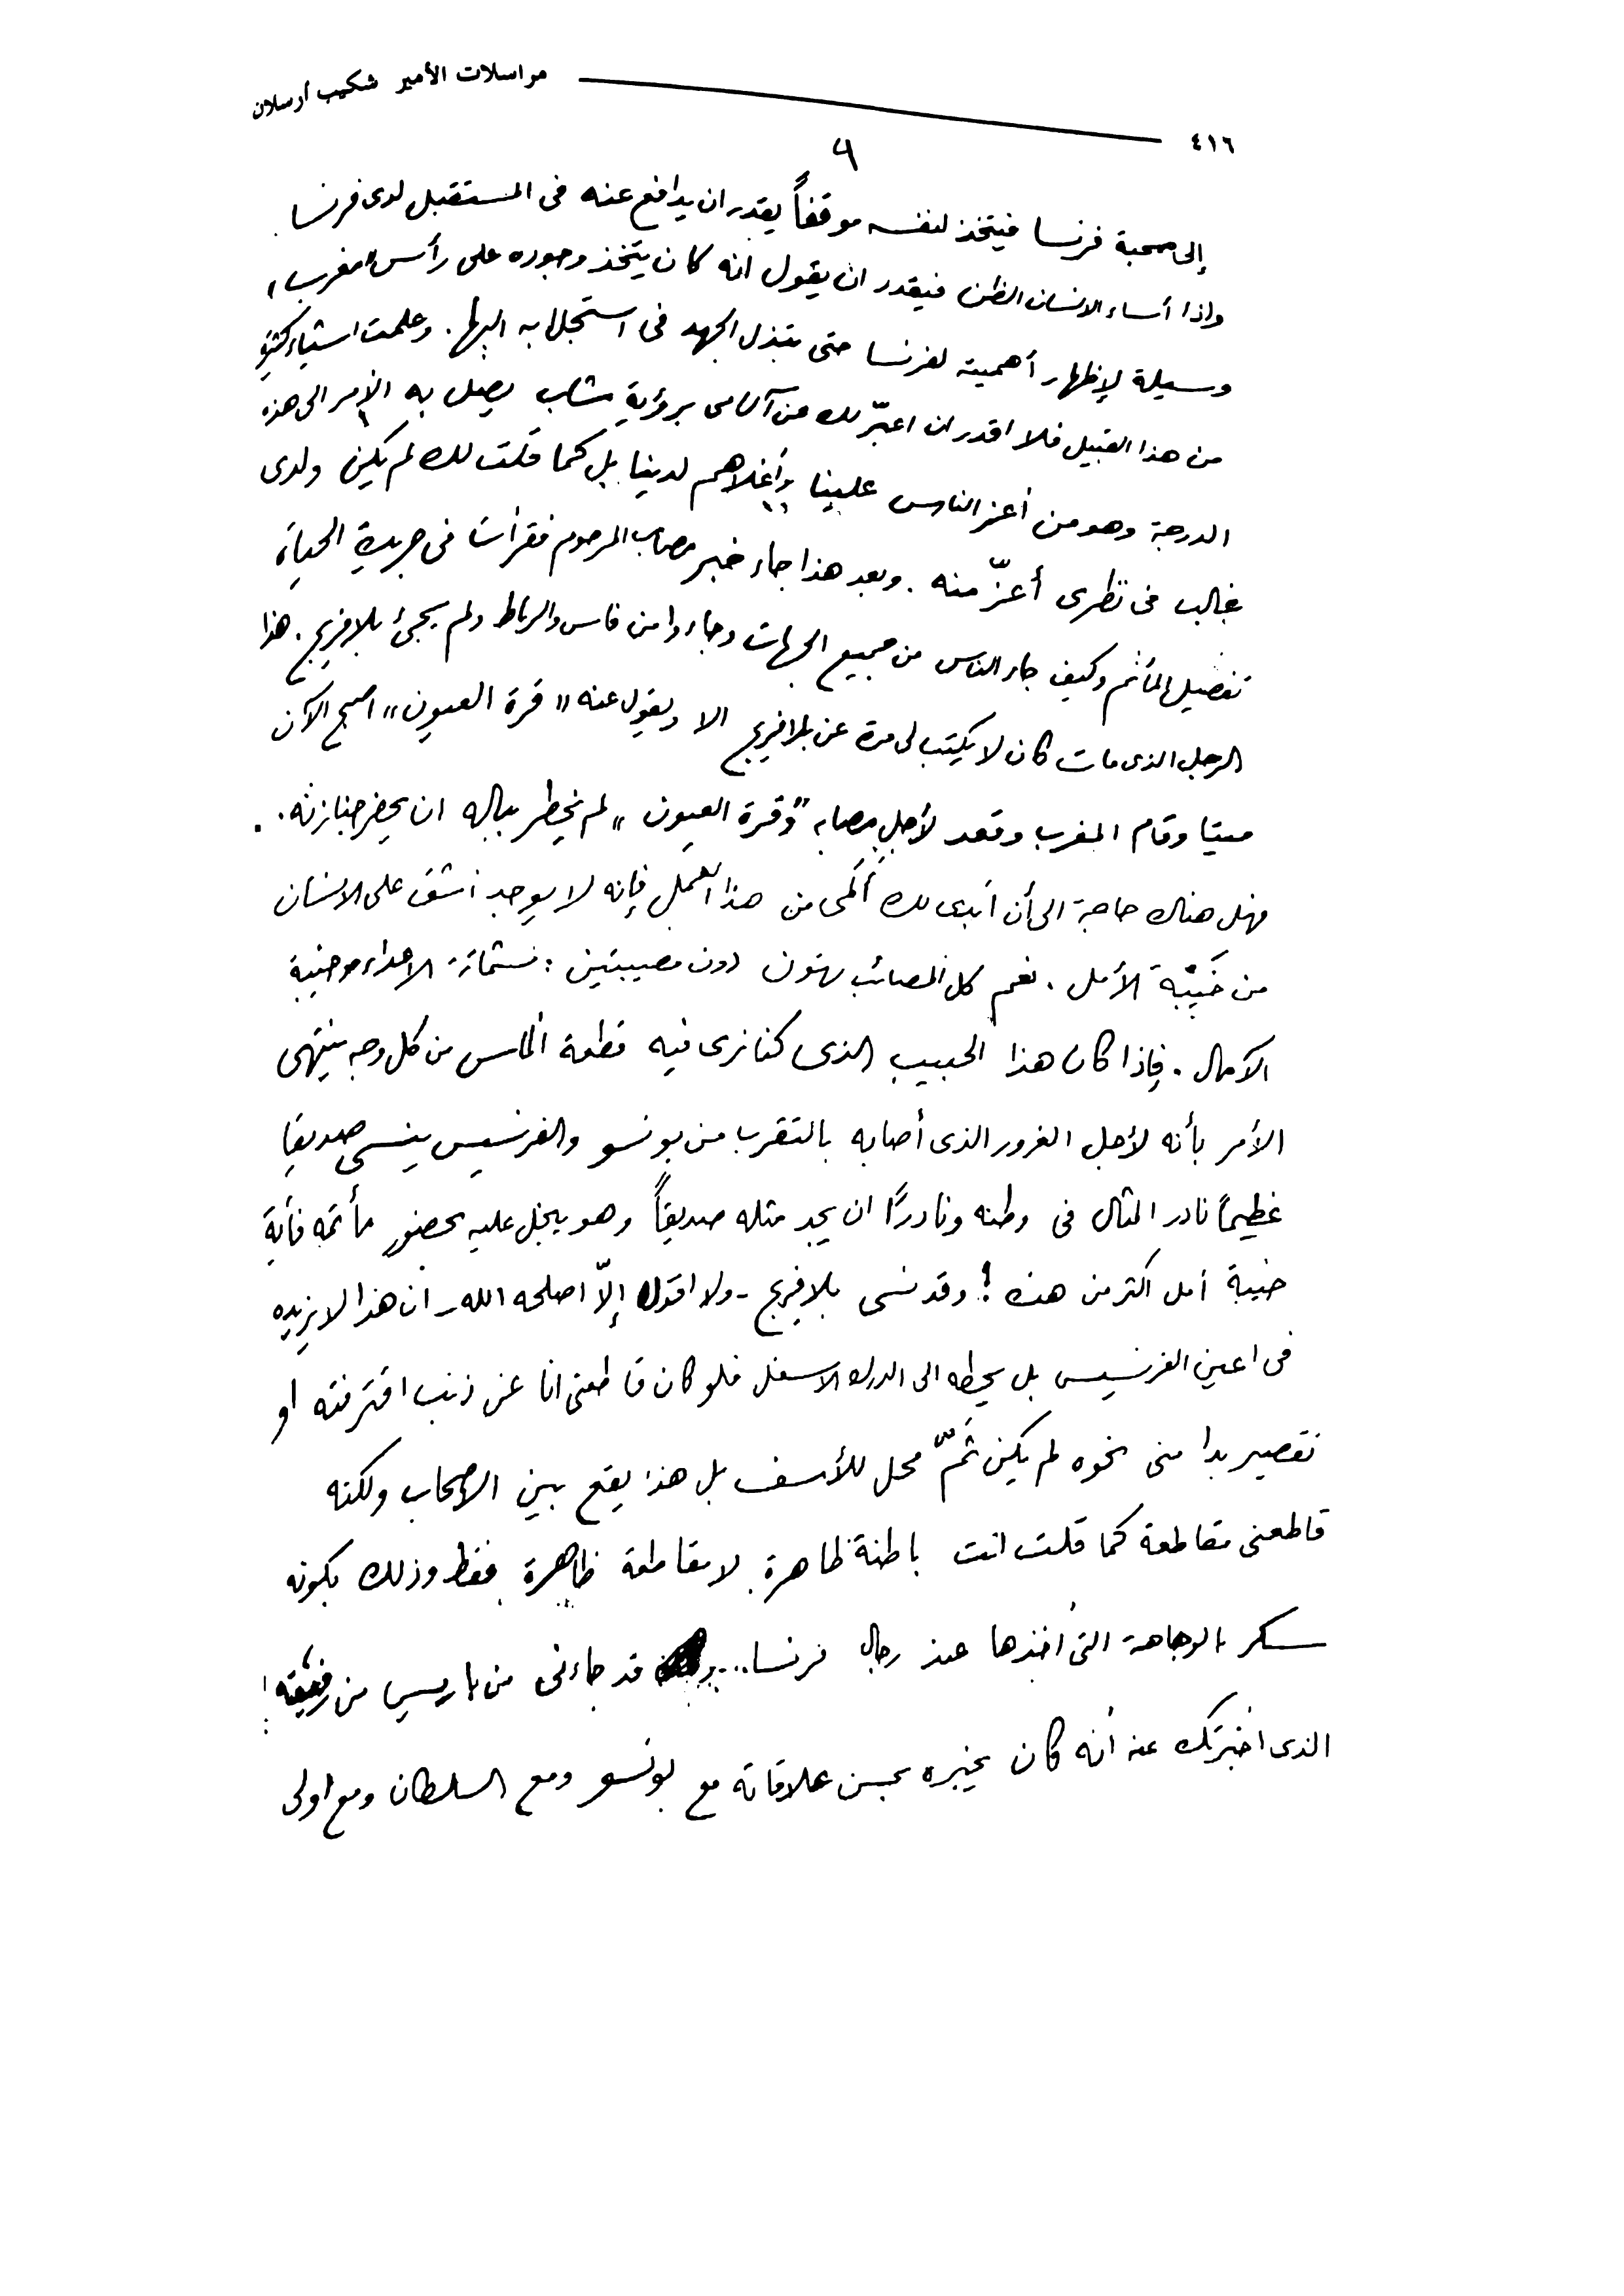 مراسلات الأمير شكيب أرسلان
٤١٦
٩
إلى محبة فرنسا فيتخذ لنفسه موقفاً يقدر ان يدافع عنه فى المستقبل لدى فرنسا.
واذا أساء الانسان الظن فيقدر ان يقول انه كان يتخذ وجوده على رأس "مغرب"
وسيلة لإظهار أهميته لفرنسا حتى تبذل الجهد فى استجلابه اليها. وعلمت اشياء كثيرة
من هذا القبيل فلا اقدر ان اعبّر لك عن آلامى برؤية شاب يصل به الأمر الى هذه
الدرجة وهو من أعز الناس علينا وأغلاهم لدينا بل كما قلت لك لم يكن ولدى
غالب فى نظرى أعزّ منه. وبعد هذا جاء خبر مصاب المرحوم فقرأت فى جريدة الحياة
تفصيل المأتم وكيف جاء الناس من جميع الجهات وجاءوا من فاس والرباط ولم يجئ بلافريج. هذا
الرجل الذى مات كان لا يكتب لى مرة عن بلافريج الا ويقول عنه "قرة العيون" اصبح الآن
ميتا وقام المغرب وقعد لأجل مصابه "وقرة العيون" لم يخطر بباله ان يحضر جنازته.
فهل هناك حاجة الى أن أبدى لك ألمى من هذا العمل فإنه لا يوجد أشق على الانسان
من خَيْبَة الأمل. نعم كل المصائب تهون دون مصيبتين: شماتة الاعداء وخيبة
الآمال. فإذا كان هذا الحبيب الذى كنا نرى فيه قطعة ألماس من كل وجه ينتهى
الأمر بأنه لأجل الغرور الذى أصابه بالتقرب من بونسو والفرنسيس ينسى صديقا
عظيماً نادر المثال فى وطنه ونادرًا ان يجد مثله صديقاً وهو يبخل عليه بحضور مأتمه فأية
خيبة أمل اكثر من هذه؟! وقد نسى بلافريج - ولا اقول إلّا اصلحه الله - ان هذا لا يزيده
فى اعين الفرنسيس بل يحطه الى الدرك الاسفل فلو كان قاطعنى انا عن ذنب اقترفته او
تقصير بدا منى نحوه لم يكن ثَمّ محل للأسف بل هذا يقع بين الاصحاب ولكنه
قاطعنى مقاطعة كما قلت انت باطنة ظاهرة لا مقاطعة ظاهرة فقط وذلك بكونه
سكر بالوجاهة التى أخذها عند رجال فرنسا... قد جاءنى من باريس من رفيقه
الذى اخبرتك عنه أنه كان يخبره بحسن علاقاته مع بونسو ومع السلطان ومع اولى